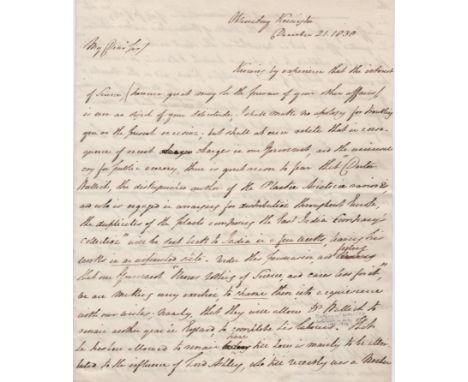 Kensington
December 21. 1830
My Dear Sir/
Knowing by experience that the interest
of Science (however great may be the pressure of your other affairs)
is ever an object of your solicitude, I shall make no apology for troubling
you on the present occasion; but shall at once state that in conse-
quence of recent changes in our Government and the universal
cry for public economy, there is great reason to fear that "Doctor
Wallich, the distinguished author of the Plantae Asiaticae rariores",
and who is engaged in arranging for distribution throughout Europe,
the duplicates of the plants composing the East India Company's
collection" will be sent back to India in a few weeks, leaving his
works in an unfinished state. Under this impression and
that our Government "knows nothing of Science, and cares less for it"
we are making every exertion to shame them into acquiescence
with our wishes. Namely, that they will allow Dr. Wallich to
remain another year in England to complete his labours. That
he has been allowed to remain here till now is mainly to be attri-
buted to the influence of Lord Ashley, who till recently was a Member